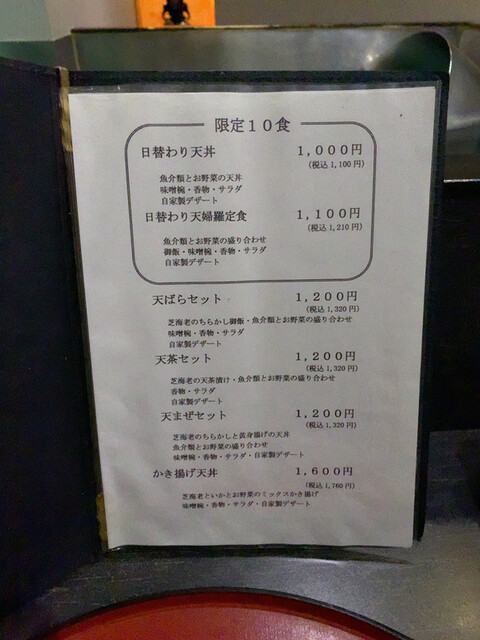 限定10食
日替わり天丼 1,000円
(税込1,100円)
魚介類とお野菜の天丼
味噌椀・香物・サラダ
自家製デザート
日替わり天婦羅定食 1,100円
(税込1,210円)
魚介類とお野菜の盛り合わせ
御飯・味噌椀・香物・サラダ
自家製デザート
天ばらセット 1,200円
(税込1,320円)
芝海老のちらかし御飯・魚介類とお野菜の盛り合わせ
味噌椀・香物・サラダ
自家製デザート
天茶セット 1,200円
(税込1,320円)
芝海老の天茶漬け・魚介類とお野菜の盛り合わせ
香物・サラダ
自家製デザート
天まぜセット 1,200円
(税込1,320円)
芝海老のちらかしと黄身揚げの天丼
魚介類とお野菜の盛り合わせ
味噌椀・香物・サラダ・自家製デザート
かき揚げ天丼 1,600円
(税込1,760円)
芝海老といかとお野菜のミックスかき揚げ
味噌椀・香物・サラダ・自家製デザート